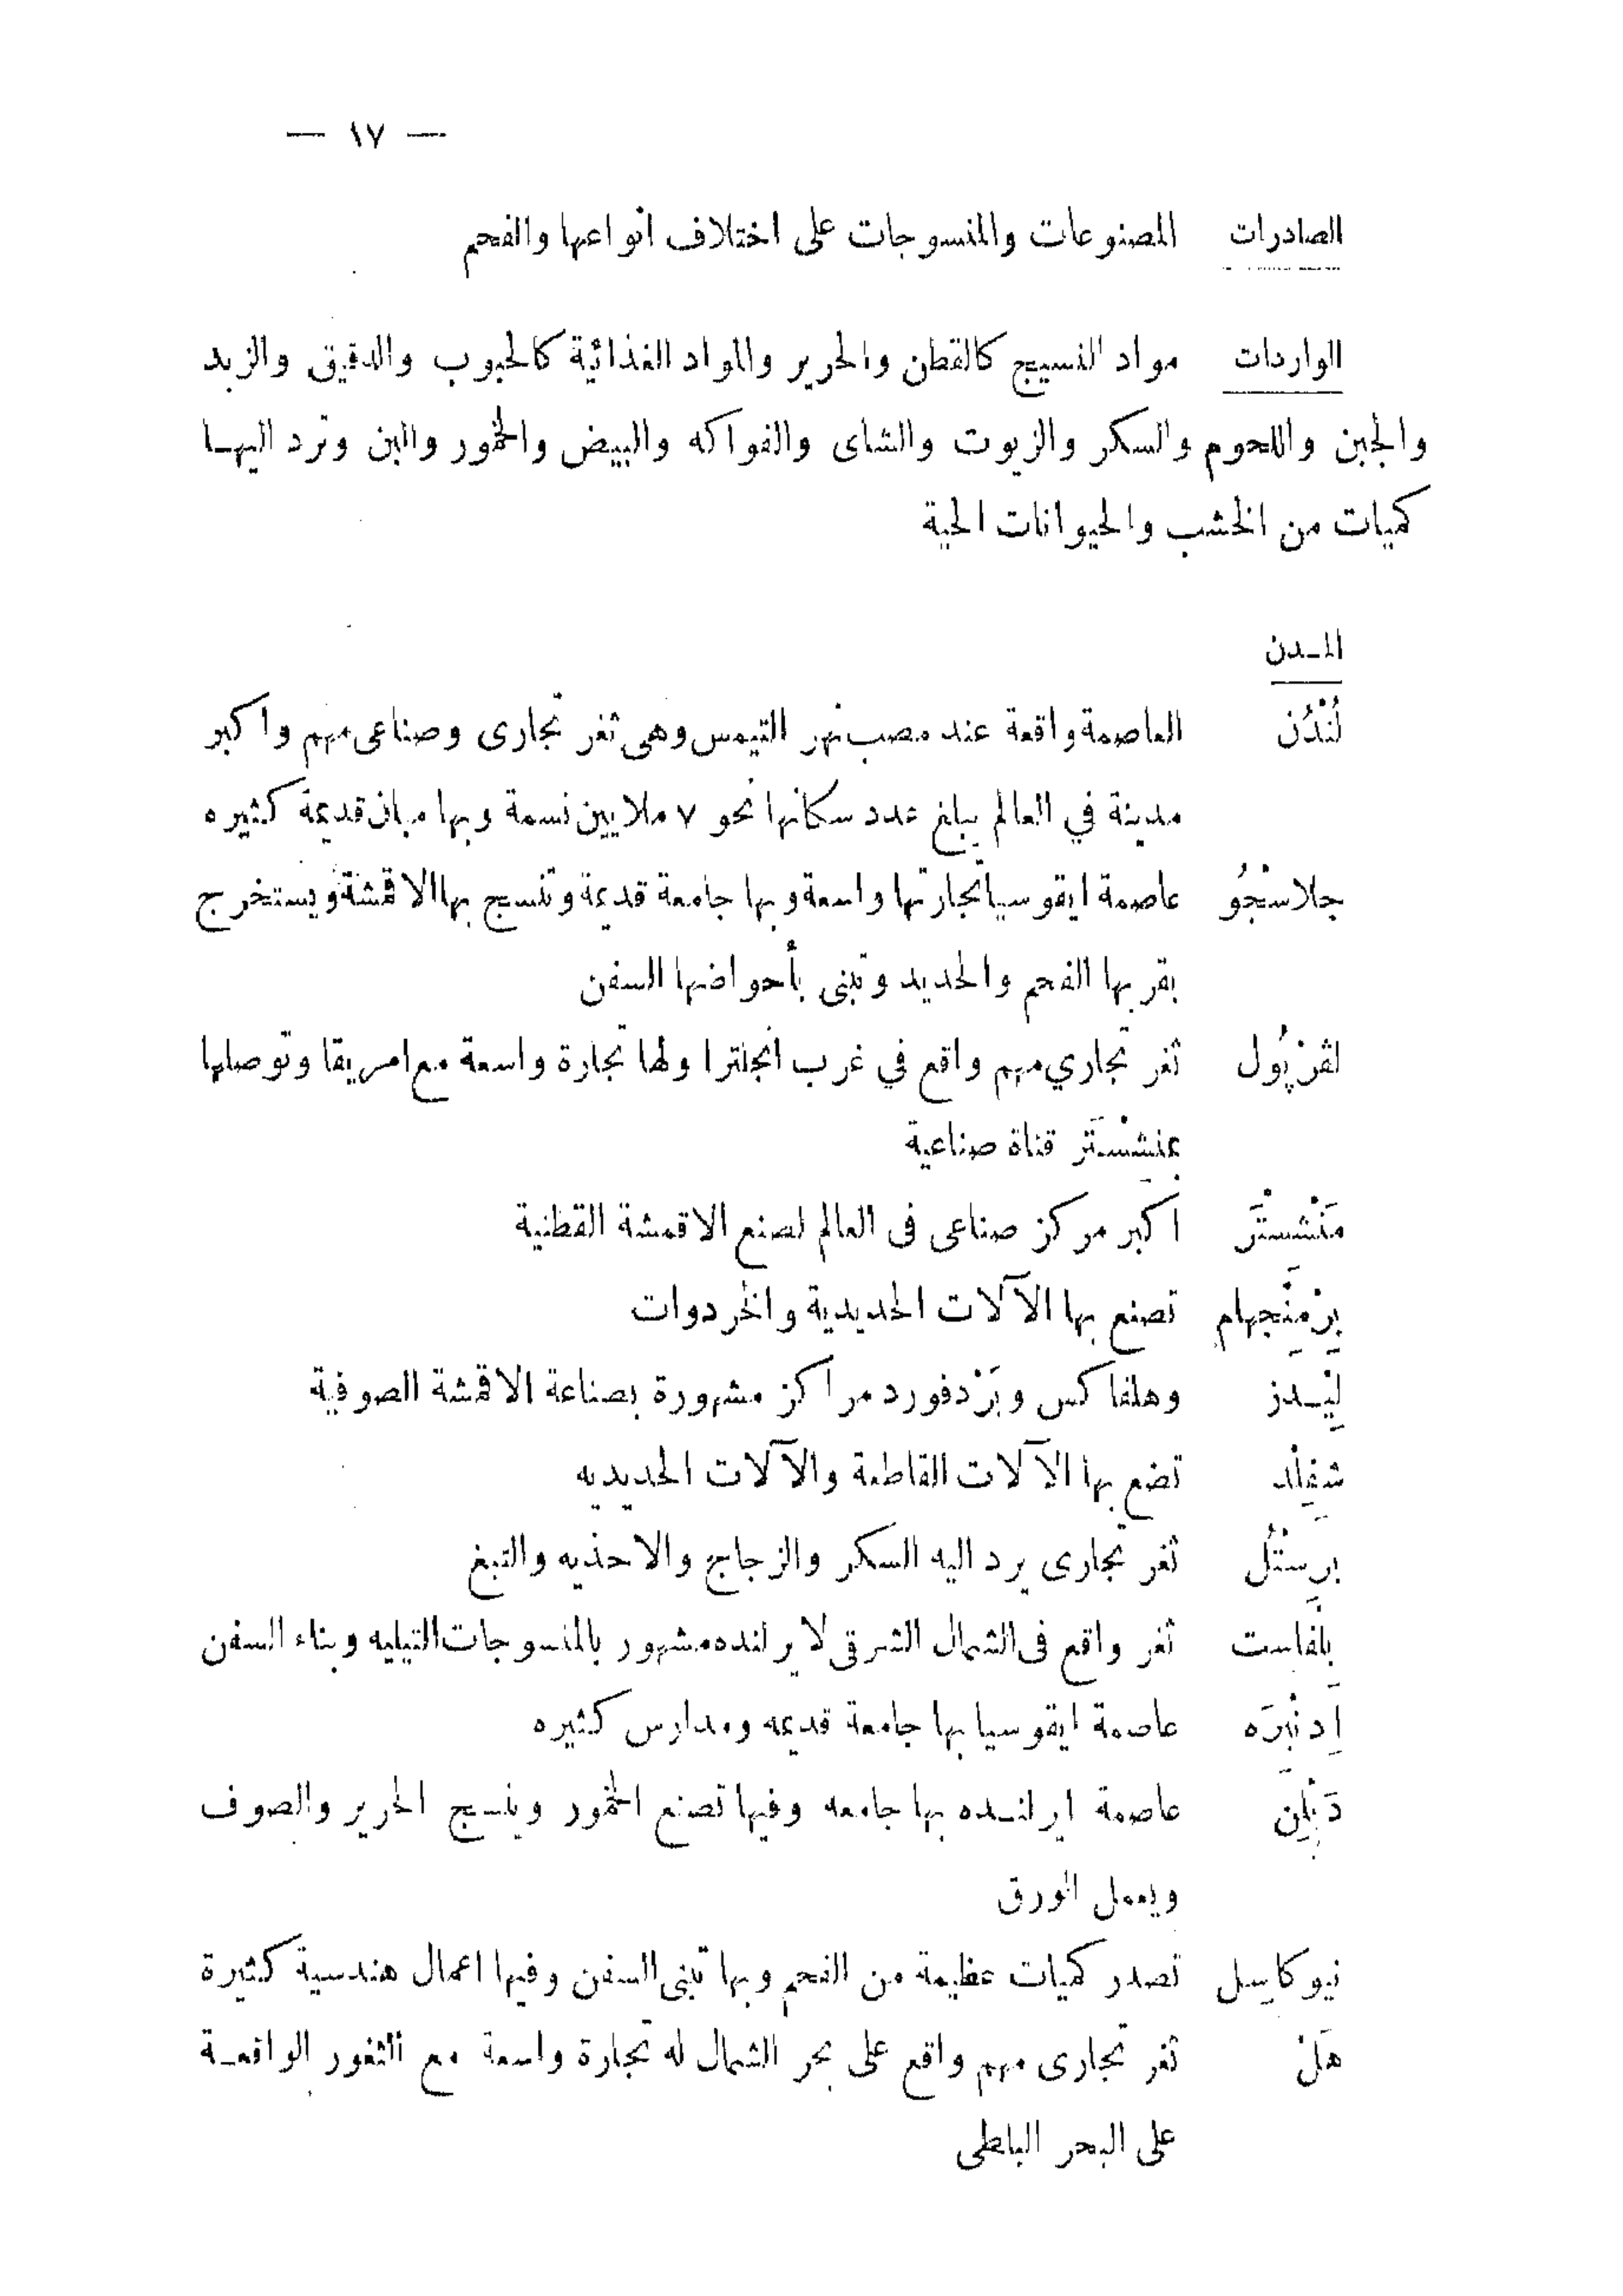 — ١٧ —
الصادرات المصنوعات والمنسوجات على اختلاف انواعها والفحم
الواردات مواد النسيج كالقطن والحرير والمواد الغذائية كالحبوب والدقيق والزبد
والجبن واللحوم والسكر والزيوت والشاى والفواكه والبيض والخمور والبن وترد اليهـا
كميات من الخشب والحيوانات الحية
المـدن
لُنْدُن العاصمة واقعة عند مصب نهر التيمس وهى ثغر تجارى وصناعى مهم واكبر
مدينة في العالم يبلغ عدد سكانها نحو ٧ ملايين نسمة وبها مبان قديمة كثيره
جلاسْجُو عاصمة ايقوسيا تجارتها واسعة وبها جامعة قديمة وتنسج بها الاقمشة ويستخرج
بقربها الفحم والحديد وتبنى بأحواضها السفن
لڤرْپُول ثغر تجاري مهم واقع في غرب انجلترا ولها تجارة واسعة مع امريقا وتوصلها
بمنشسْتَر قناة صناعية
مَنْشسْتَر اكبر مركز صناعى فى العالم لصنع الاقمشة القطنية
بِرْمِنْجهام تصنع بها الآلات الحديدية والخردوات
لِيْـدز وهلفاكس وبَرْدفورد مراكز مشهورة بصناعة الاقمشة الصوفية
شفِلْد تضع بها الآلات القاطعة والآلات الحديديه
برِسْتُل ثغر تجارى يرد اليه السكر والزجاج والاحذيه والتبغ
بِلْفاست ثغر واقع فى الشمال الشرقى لايرلنده مشهور بالمنسوجات التيليه وبناء السفن
اِدنْبرَه عاصمة ايقوسيا بها جامعة قديمه ومدارس كثيره
دَبْلِن عاصمة ايرلنـده بها جامعه وفيها تصنع الخمور وينسج الحرير والصوف
ويعمل الورق
نيوكاسِل تصدر كميات عظيمة من الفحم وبها تبنى السفن وفيها اعمال هندسية كثيرة
هَلْ ثغر تجارى مهم واقع على بحر الشمال له تجارة واسعة مع الثغور الواقعـة
على البحر البلطى